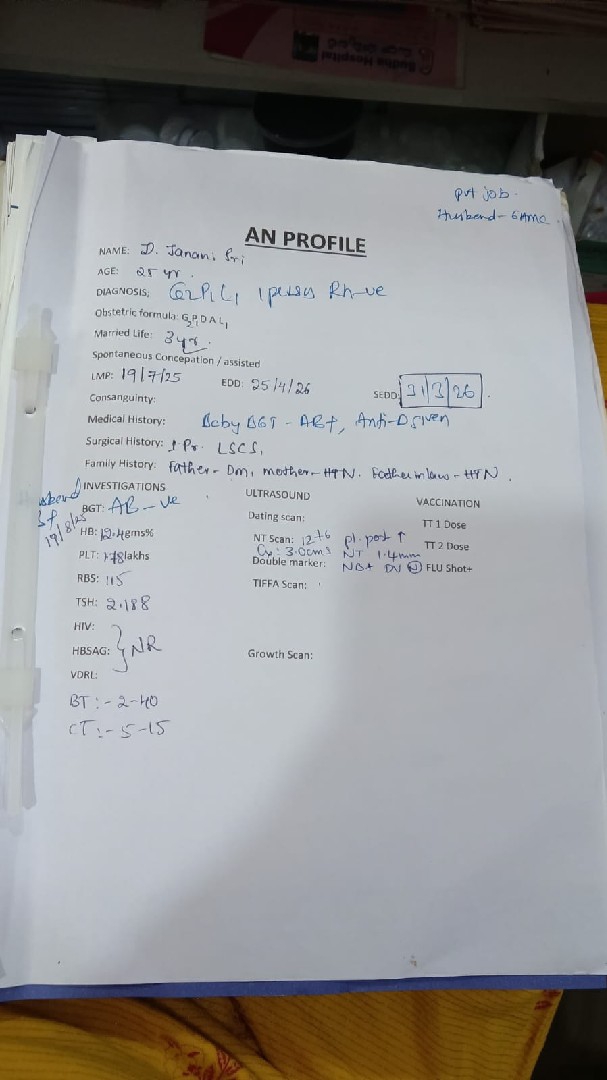 Budha Hospital
pvt job.
Husband - same
AN PROFILE
NAME: D. Janani Sri
AGE: 25 yr.
DIAGNOSIS: G2P1L1 1 prev LSCS Rh-ve
Obstetric formula: G2P1D A L1
Married Life: 3 yr.
Spontaneous Concepation / assisted
LMP: 19/7/25 EDD: 25/4/26 SEDD: 31/3/26
Consanguinty:
Medical History: Baby BGT - AB+, Anti-D given
Surgical History: 1 Pr. LSCS,
Family History: Father - Dm, mother - HTN. Father in law - HTN.
INVESTIGATIONS ULTRASOUND VACCINATION
19/8/25
BGT: AB -ve Dating scan: TT 1 Dose
HB: 12.4gms% NT Scan: 12+6 pl. post ↑ TT 2 Dose
Cx: 3.0cms NT 1.4mm
PLT: lakhs Double marker: NB+ DV N FLU Shot+
RBS: 115 TIFFA Scan:
TSH: 2.188
HIV:
HBSAG: } NR Growth Scan:
VDRL:
BT :- 2-40
CT :- 5-15